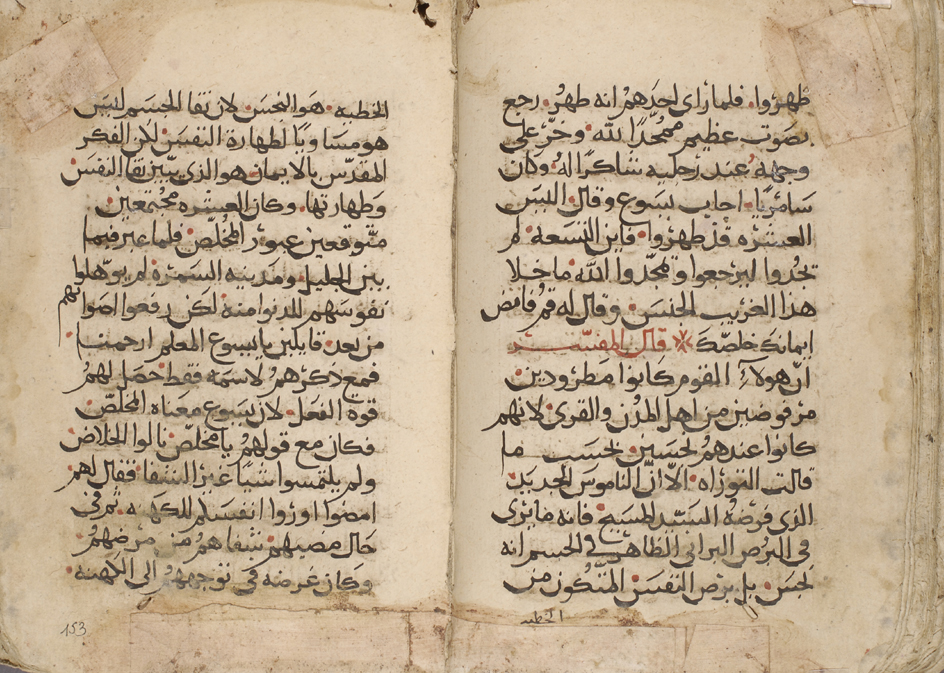 طهروا فلما راى احدهم انه طهر رجع
بصوت عظيم ممجدًا لله وخر على
وجهه عند رجليه شاكرًا له وكان
سامريًا اجاب يسوع وقال اليس
العشره قد طهروا فاين التسعه لم
يجدوا ليرجعوا ويمجدوا الله ماخلا
هذا الغريب الجنس وقال له قم فامض
ايمانك خلصك قال المفسر
ان هولاء القوم كانوا مطرودين
مرفوضين من اهل المدن والقرى لانهم
كانوا عندهم نجسين بحسب ما
قالت التوراه الا ان الناموس الجديد
الذى فرضه السيد المسيح فانه ما يرى
فى البرص البرانى الظاهر فى الجسم انه
نجس بل برص النفس المتكون من
الخطيه
الخطيه هو النجس لان نقا الجسم ليس
هو مساويًا لطهارة النفس لان الفكر
المقدس بالايمان هو الذى يبين نقا النفس
وطهارتها وكان العشره مجتمعين
متوقعين عبور المخلص فلما عبر فيما
بين الجليل ومدينه السمره لم يوهلوا
نفوسهم للدنو منه لكن رفعوا اصواتهم
من بعد قايلين يايسوع المعلم ارحمنا
فمع ذكرهم لاسمه فقط حصل لهم
قوة الفعل لان يسوع معناه المخلص
فكان مع قولهم يامخلص نالوا الخلاص
ولم يلتمسوا شيًا غير الشفا فقال لهم
امضوا اوروا انفسكم للكهنه ثم فى
حال مضيهم شفاهم من مرضهم
وكان غرضه فى توجههم الى الكهنه
153